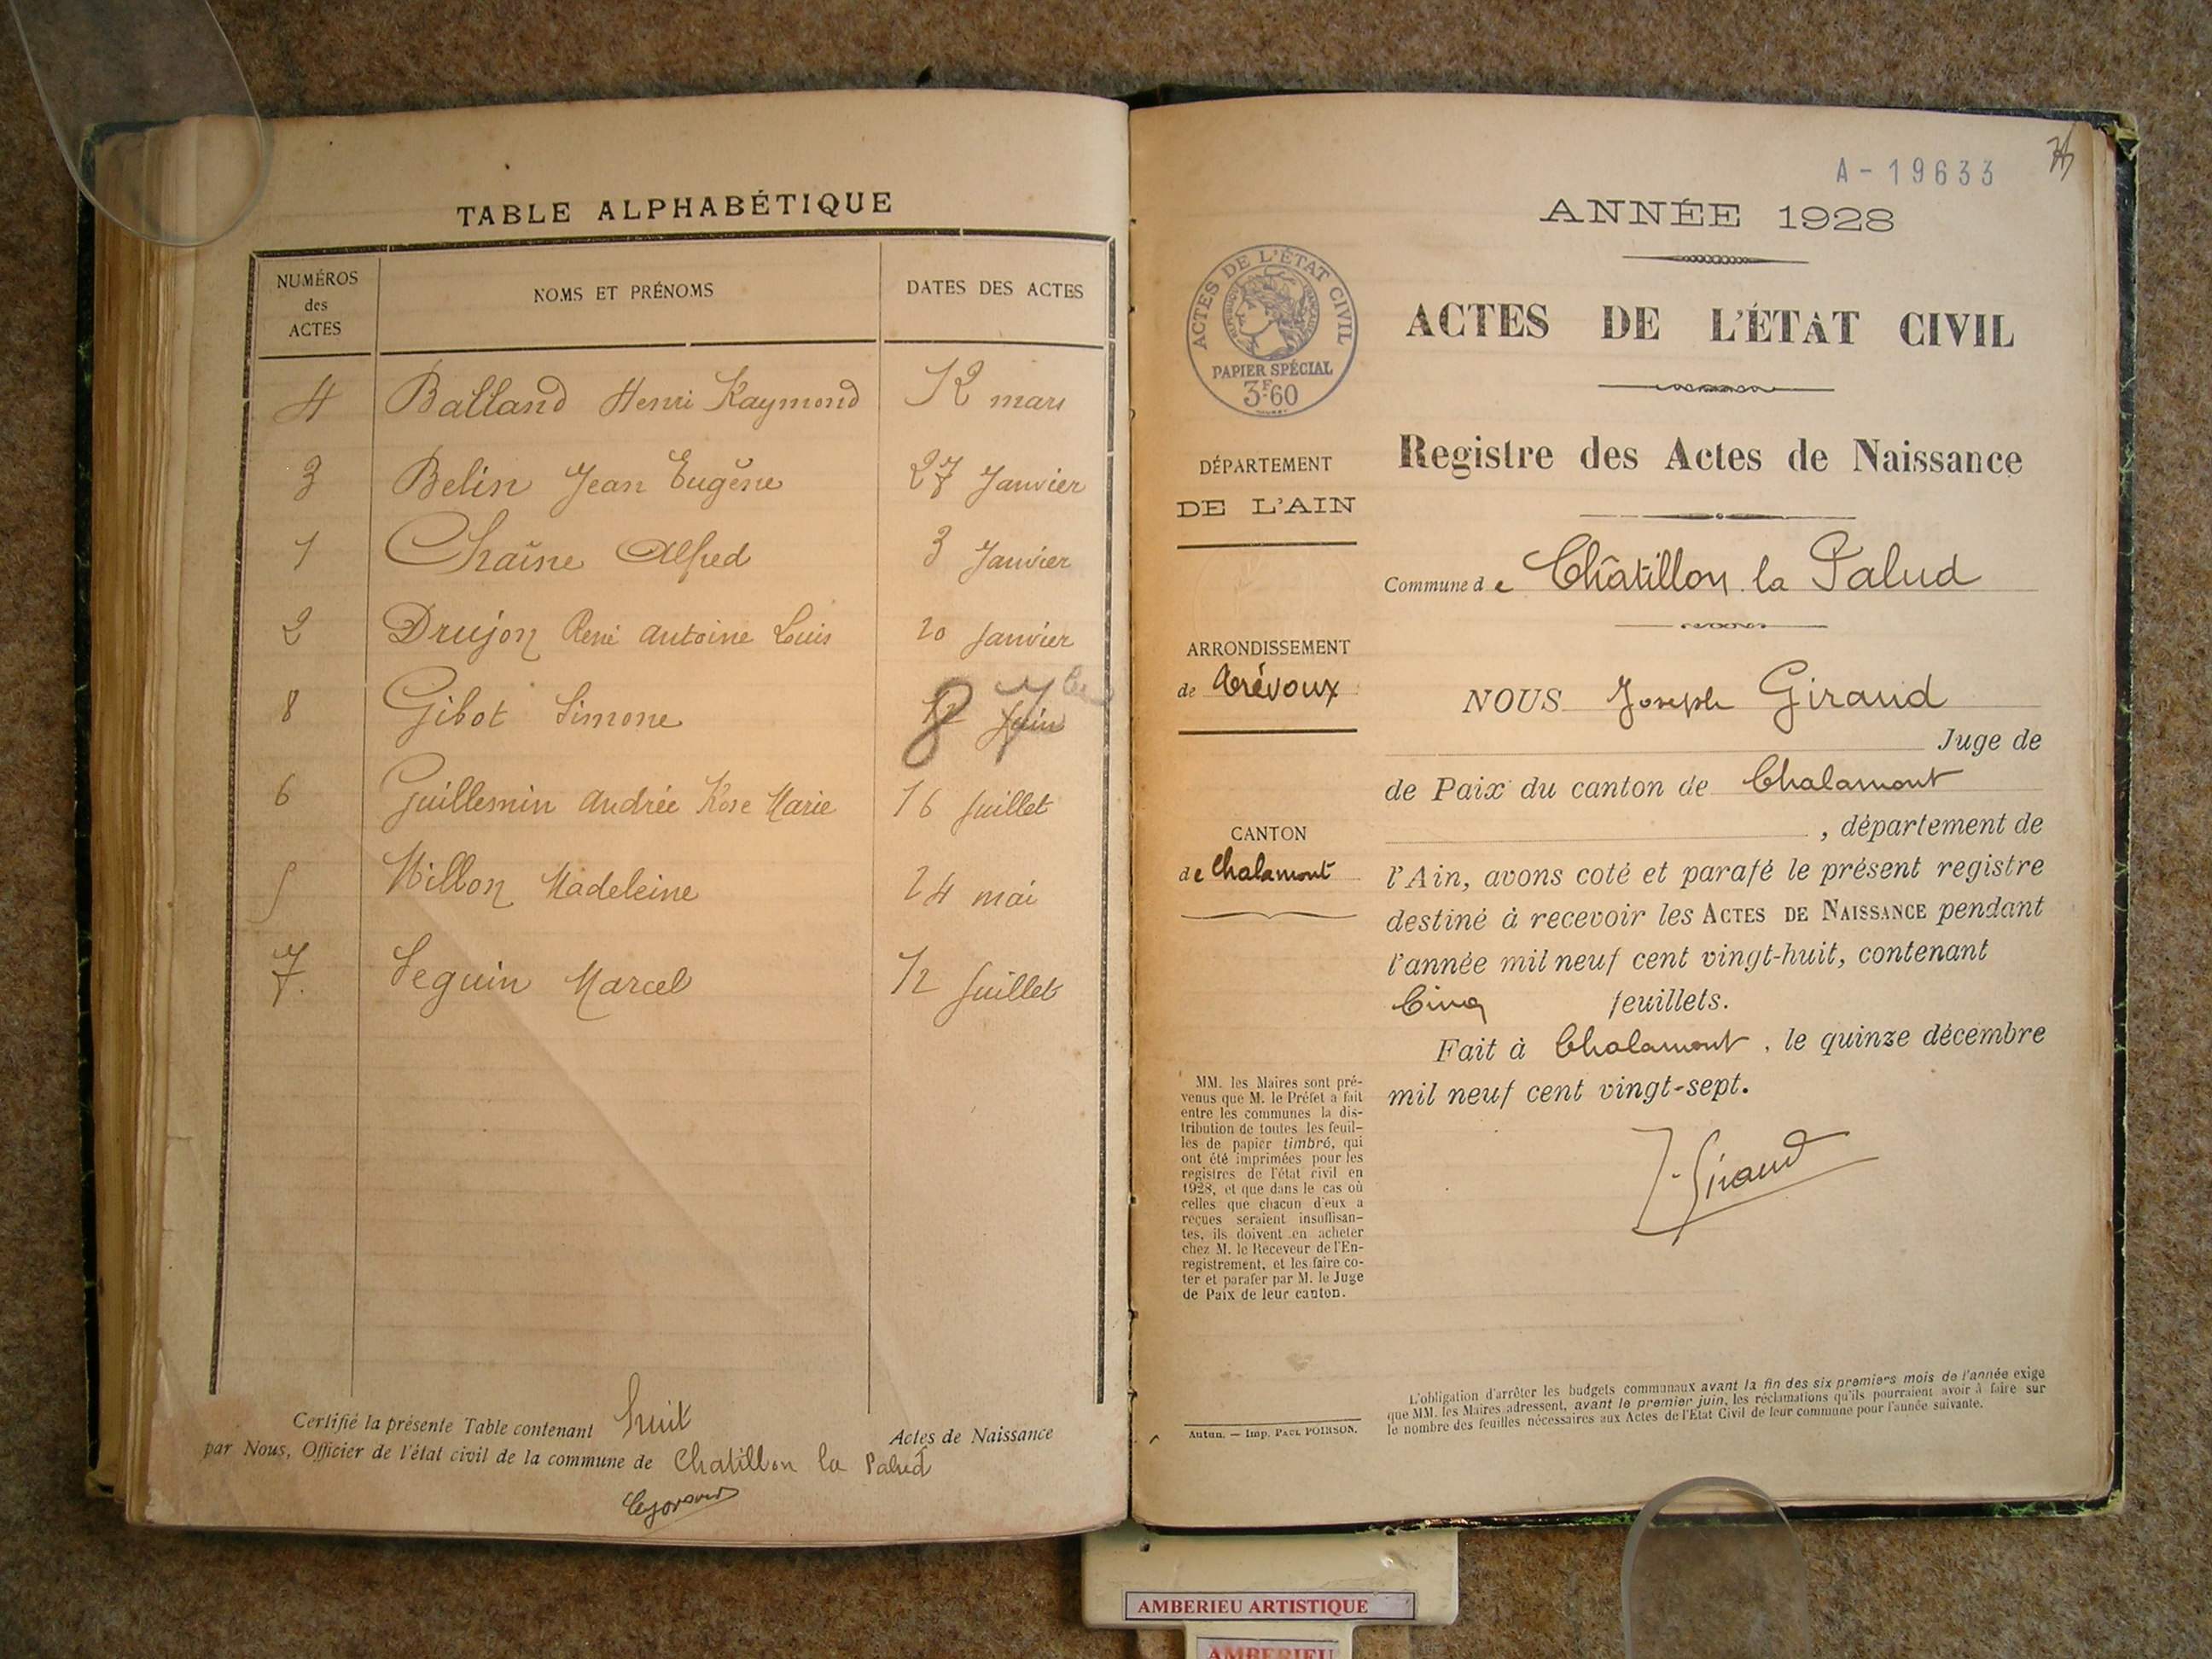 TABLE ALPHABÉTIQUE
NUMÉROS
des
ACTES
NOMS ET PRÉNOMS
DATES DES ACTES
4 Balland Henri Raymond 12 mars
3 Belin Jean Eugène 27 Janvier
1 Chaîne Alfred 3 Janvier
2 Drujon René Antoine Louis 20 Janvier
8 Gibot Simone 8 7bre
6 Guillemin Andrée Rose Marie 16 Juillet
5 Millon Madeleine 24 mai
7. Seguin Marcel 12 Juillet
Certifié la présente Table contenant huit Actes de Naissance
par Nous, Officier de l'état civil de la commune de Chatillon la Palud
A-19633
ANNÉE 1928
ACTES DE L'ÉTAT CIVIL
RÉPUBLIQUE FRANÇAISE
PAPIER SPÉCIAL
3F.60
ACTES DE L'ÉTAT CIVIL
Registre des Actes de Naissance
DÉPARTEMENT
DE L'AIN
Commune de Châtillon la Palud
ARRONDISSEMENT
de Trévoux
CANTON
de Chalamont
NOUS Joseph Giraud
Juge de
de Paix du canton de Chalamont
, département de
l'Ain, avons coté et parafé le présent registre
destiné à recevoir les ACTES DE NAISSANCE pendant
l'année mil neuf cent vingt-huit, contenant
Cinq feuillets.
Fait à Chalamont, le quinze décembre
mil neuf cent vingt-sept.
J. Giraud
MM. les Maires sont pré-
venus que M. le Préfet a fait
entre les communes la dis-
tribution de toutes les feuil-
les de papier timbré, qui
ont été imprimées pour les
registres de l'état civil en
1928, et que dans le cas où
celles que chacun d'eux a
reçues seraient insuffisan-
tes, ils doivent en acheter
chez M. le Receveur de l'En-
registrement, et les faire co-
ter et parafer par M. le Juge
de Paix de leur canton.
Autun. — Imp. PAUL POIRSON.
L'obligation d'arrêter les budgets communaux avant la fin des six premiers mois de l'année exige
que MM. les Maires adressent, avant le premier juin, les réclamations qu'ils pourraient avoir à faire sur
le nombre des feuilles nécessaires aux Actes de l'Etat Civil de leur commune pour l'année suivante.
AMBERIEU ARTISTIQUE
AMBERIEU